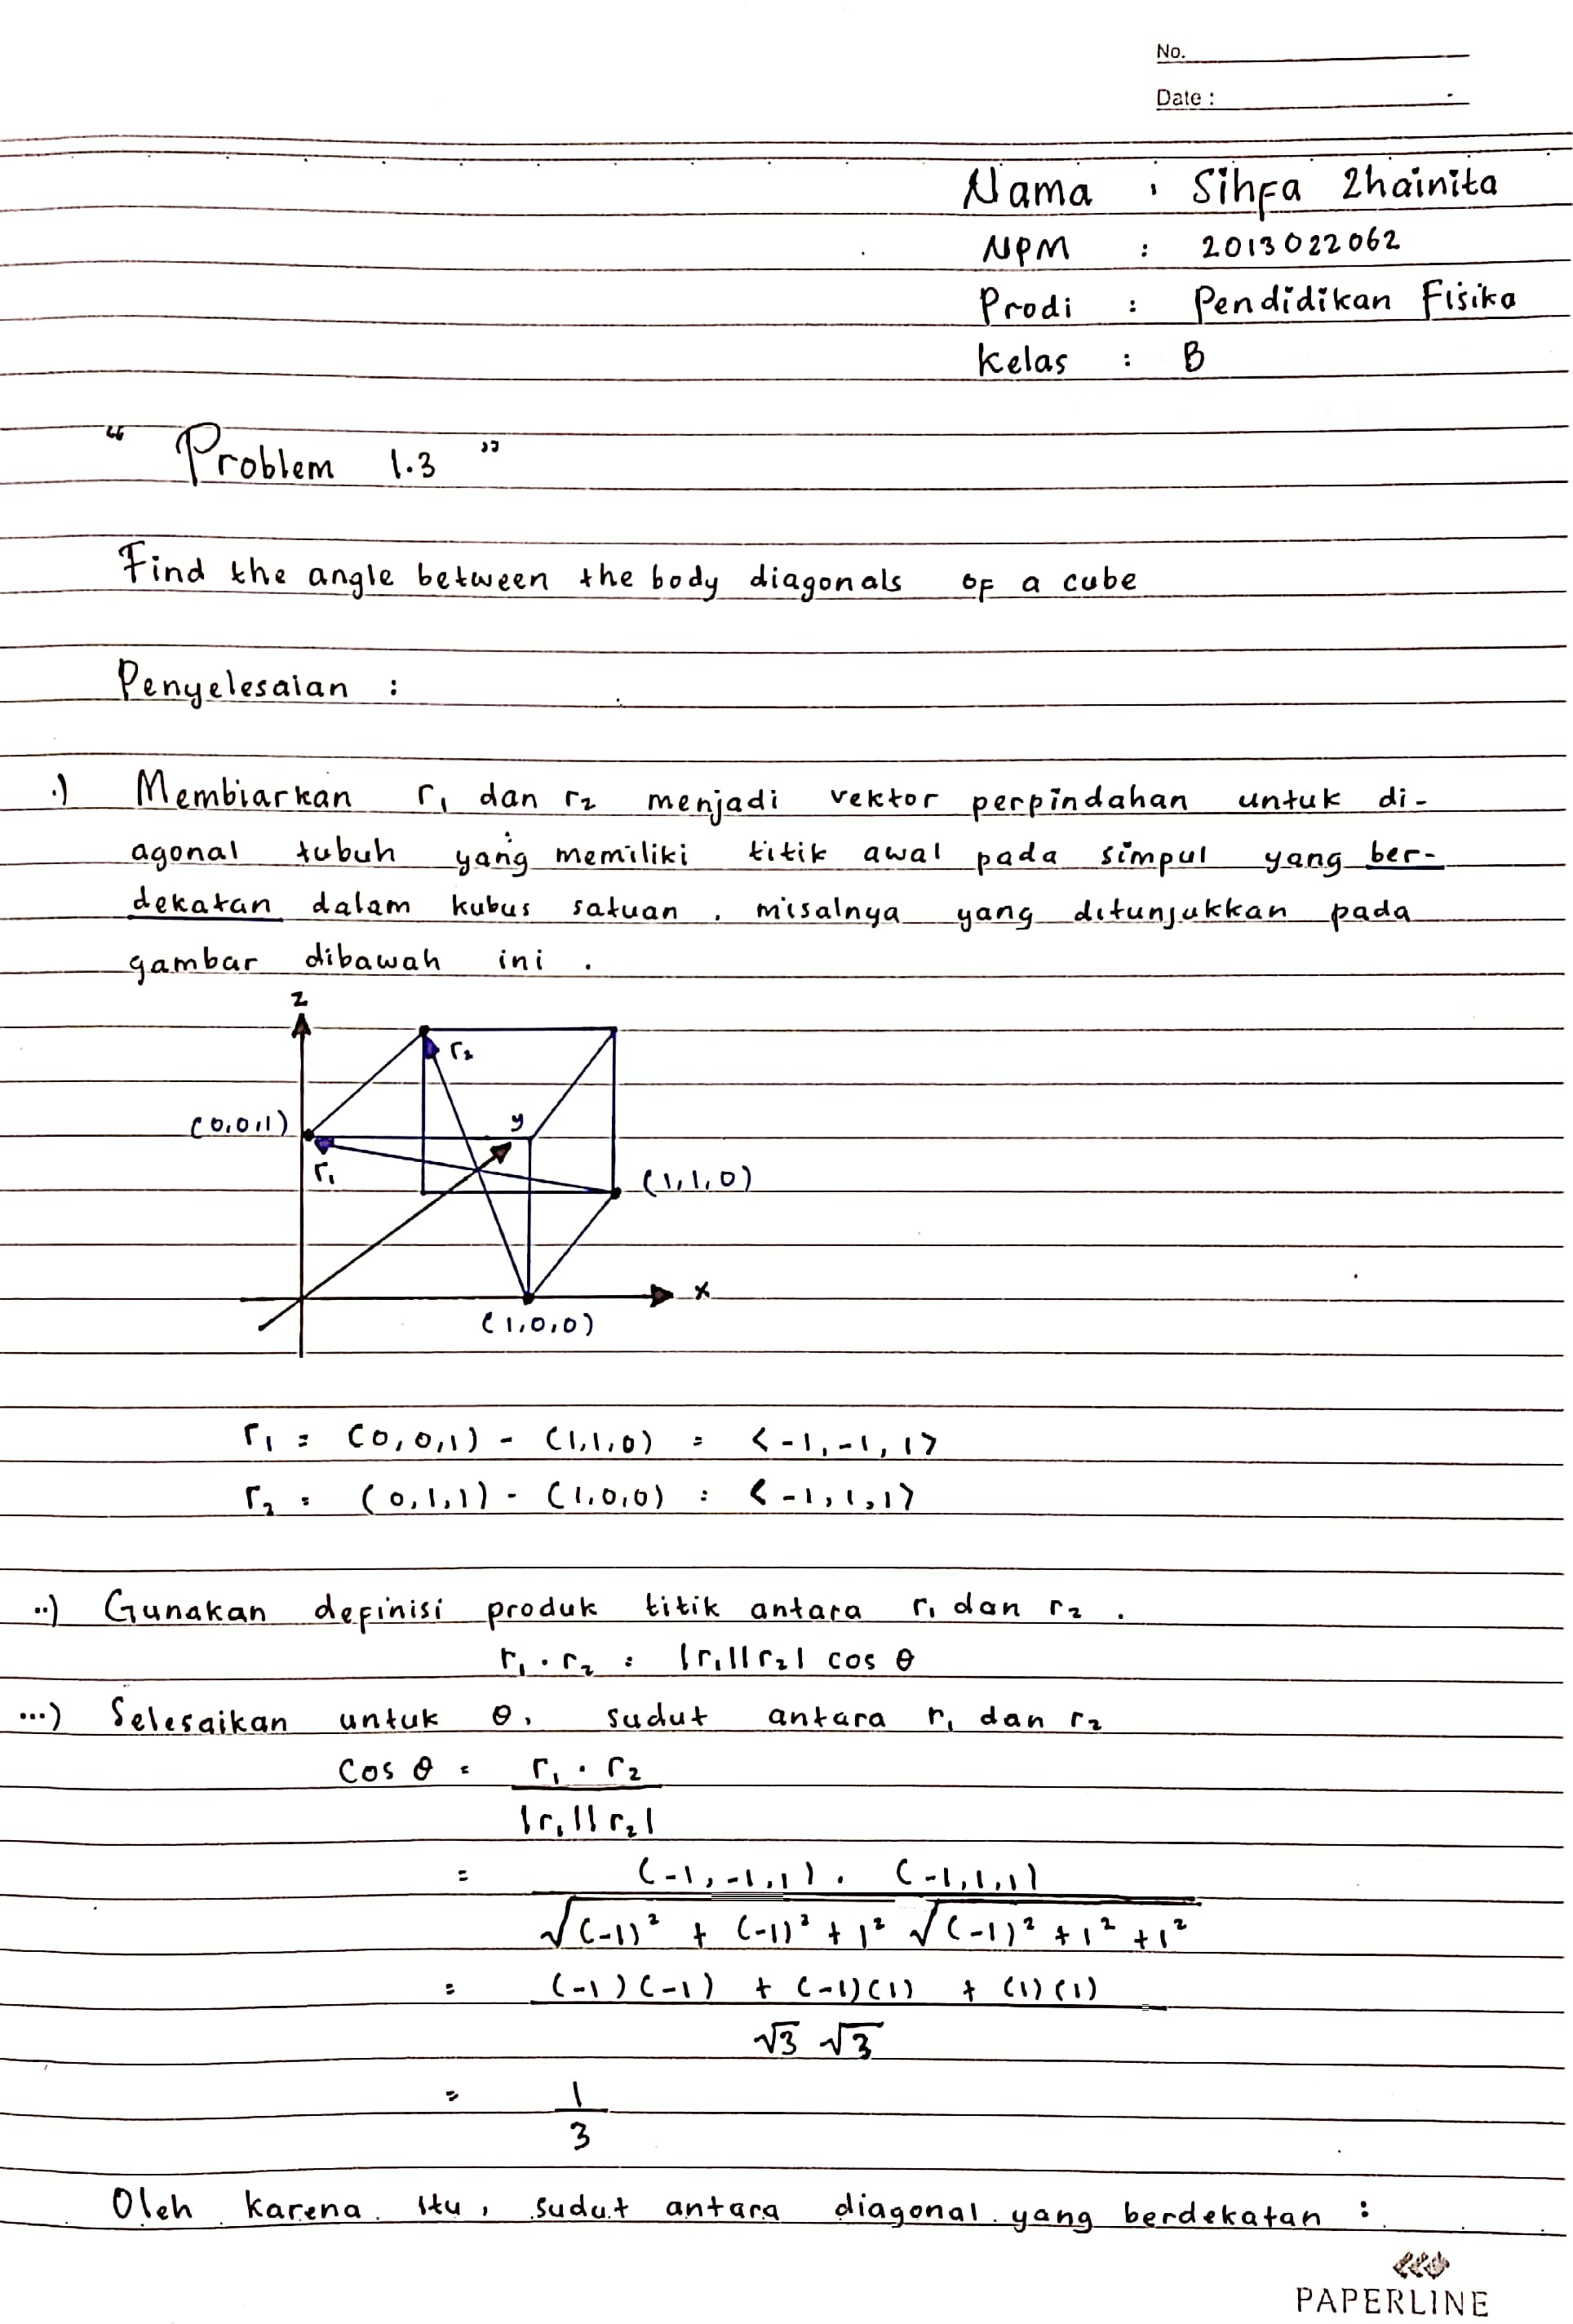 No.
Date :
Nama : Sihfa Zhainita
NPM : 2013022062
Prodi : Pendidikan Fisika
Kelas : B
“ Problem 1.3 ”
Find the angle between the body diagonals of a cube
Penyelesaian :
.) Membiarkan r₁ dan r₂ menjadi vektor perpindahan untuk di-
agonal tubuh yang memiliki titik awal pada simpul yang ber-
dekatan dalam kubus satuan, misalnya yang ditunjukkan pada
gambar dibawah ini .
z
r₂
(0,0,1)
y
r₁
(1,1,0)
x
(1,0,0)
r₁ = (0,0,1) - (1,1,0) = <-1,-1,1>
r₂ = (0,1,1) - (1,0,0) = <-1,1,1>
..) Gunakan definisi produk titik antara r₁ dan r₂ .
r₁ . r₂ = |r₁||r₂| cos θ
...) Selesaikan untuk θ, sudut antara r₁ dan r₂
cos θ = r₁ . r₂
|r₁||r₂|
= (-1,-1,1) . (-1,1,1)
√(-1)² + (-1)² + 1² √(-1)² + 1² + 1²
= (-1)(-1) + (-1)(1) + (1)(1)
√3 √3
= 1
3
Oleh karena itu, sudut antara diagonal yang berdekatan :
PAPERLINE